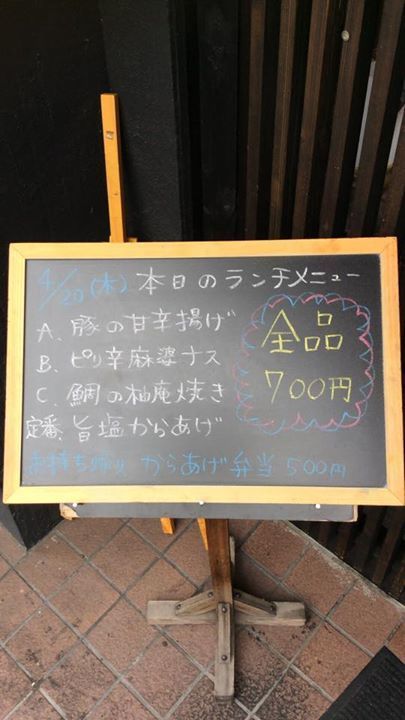 4/20(木) 本日のランチメニュー
A. 豚の甘辛揚げ
B. ピリ辛麻婆ナス
C. 鯛の柚庵焼き
定番. 旨塩からあげ
お持ち帰り からあげ弁当 500円
全品
700円